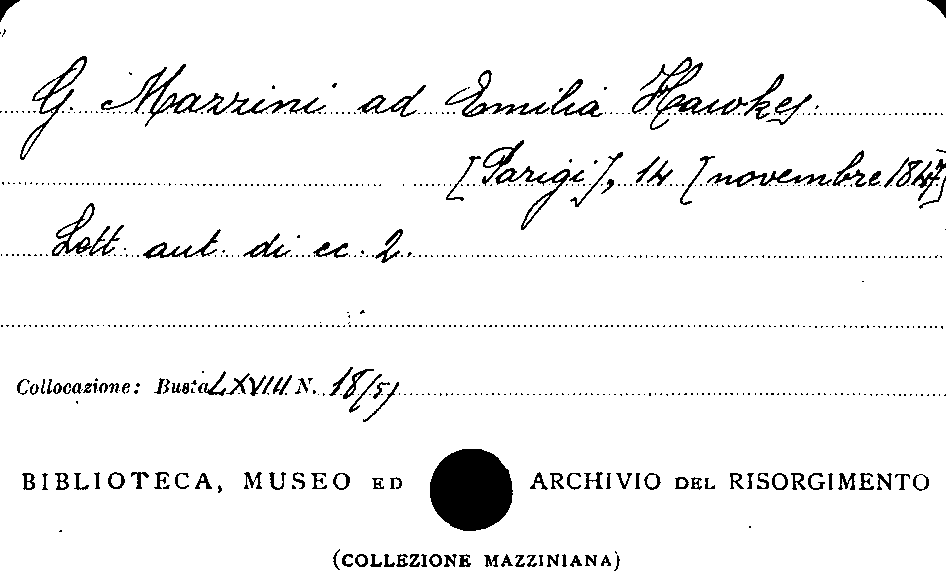 G. Mazzini ad Emilia Hawkes.
[Parigi], 14 [novembre 1847]
Lett. aut. di cc. 2.
Collocazione: Busta LXVIII N. 18/51
BIBLIOTECA, MUSEO ED ARCHIVIO DEL RISORGIMENTO
(COLLEZIONE MAZZINIANA)